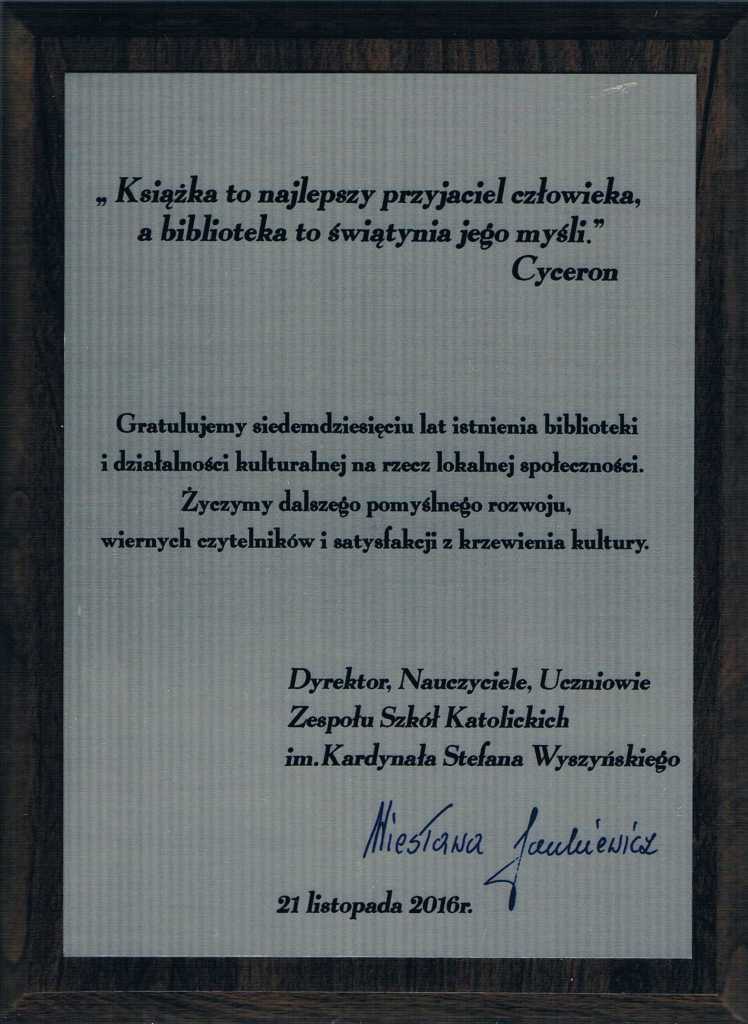 „ Książka to najlepszy przyjaciel człowieka,
a biblioteka to świątynia jego myśli.”
Cyceron
Gratulujemy siedemdziesięciu lat istnienia biblioteki
i działalności kulturalnej na rzecz lokalnej społeczności.
Życzymy dalszego pomyślnego rozwoju,
wiernych czytelników i satysfakcji z krzewienia kultury.
Dyrektor, Nauczyciele, Uczniowie
Zespołu Szkół Katolickich
im.Kardynała Stefana Wyszyńskiego
Miesława Jankiewicz
21 listopada 2016r.